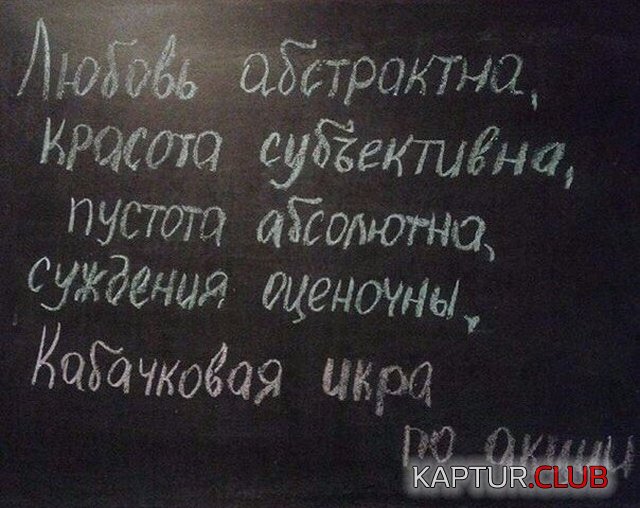 Любовь абстрактна,
красота субъективна,
пустота абсолютна,
суждения оценочны,
Кабачковая икра
по акции
KAPTUR.CLUB